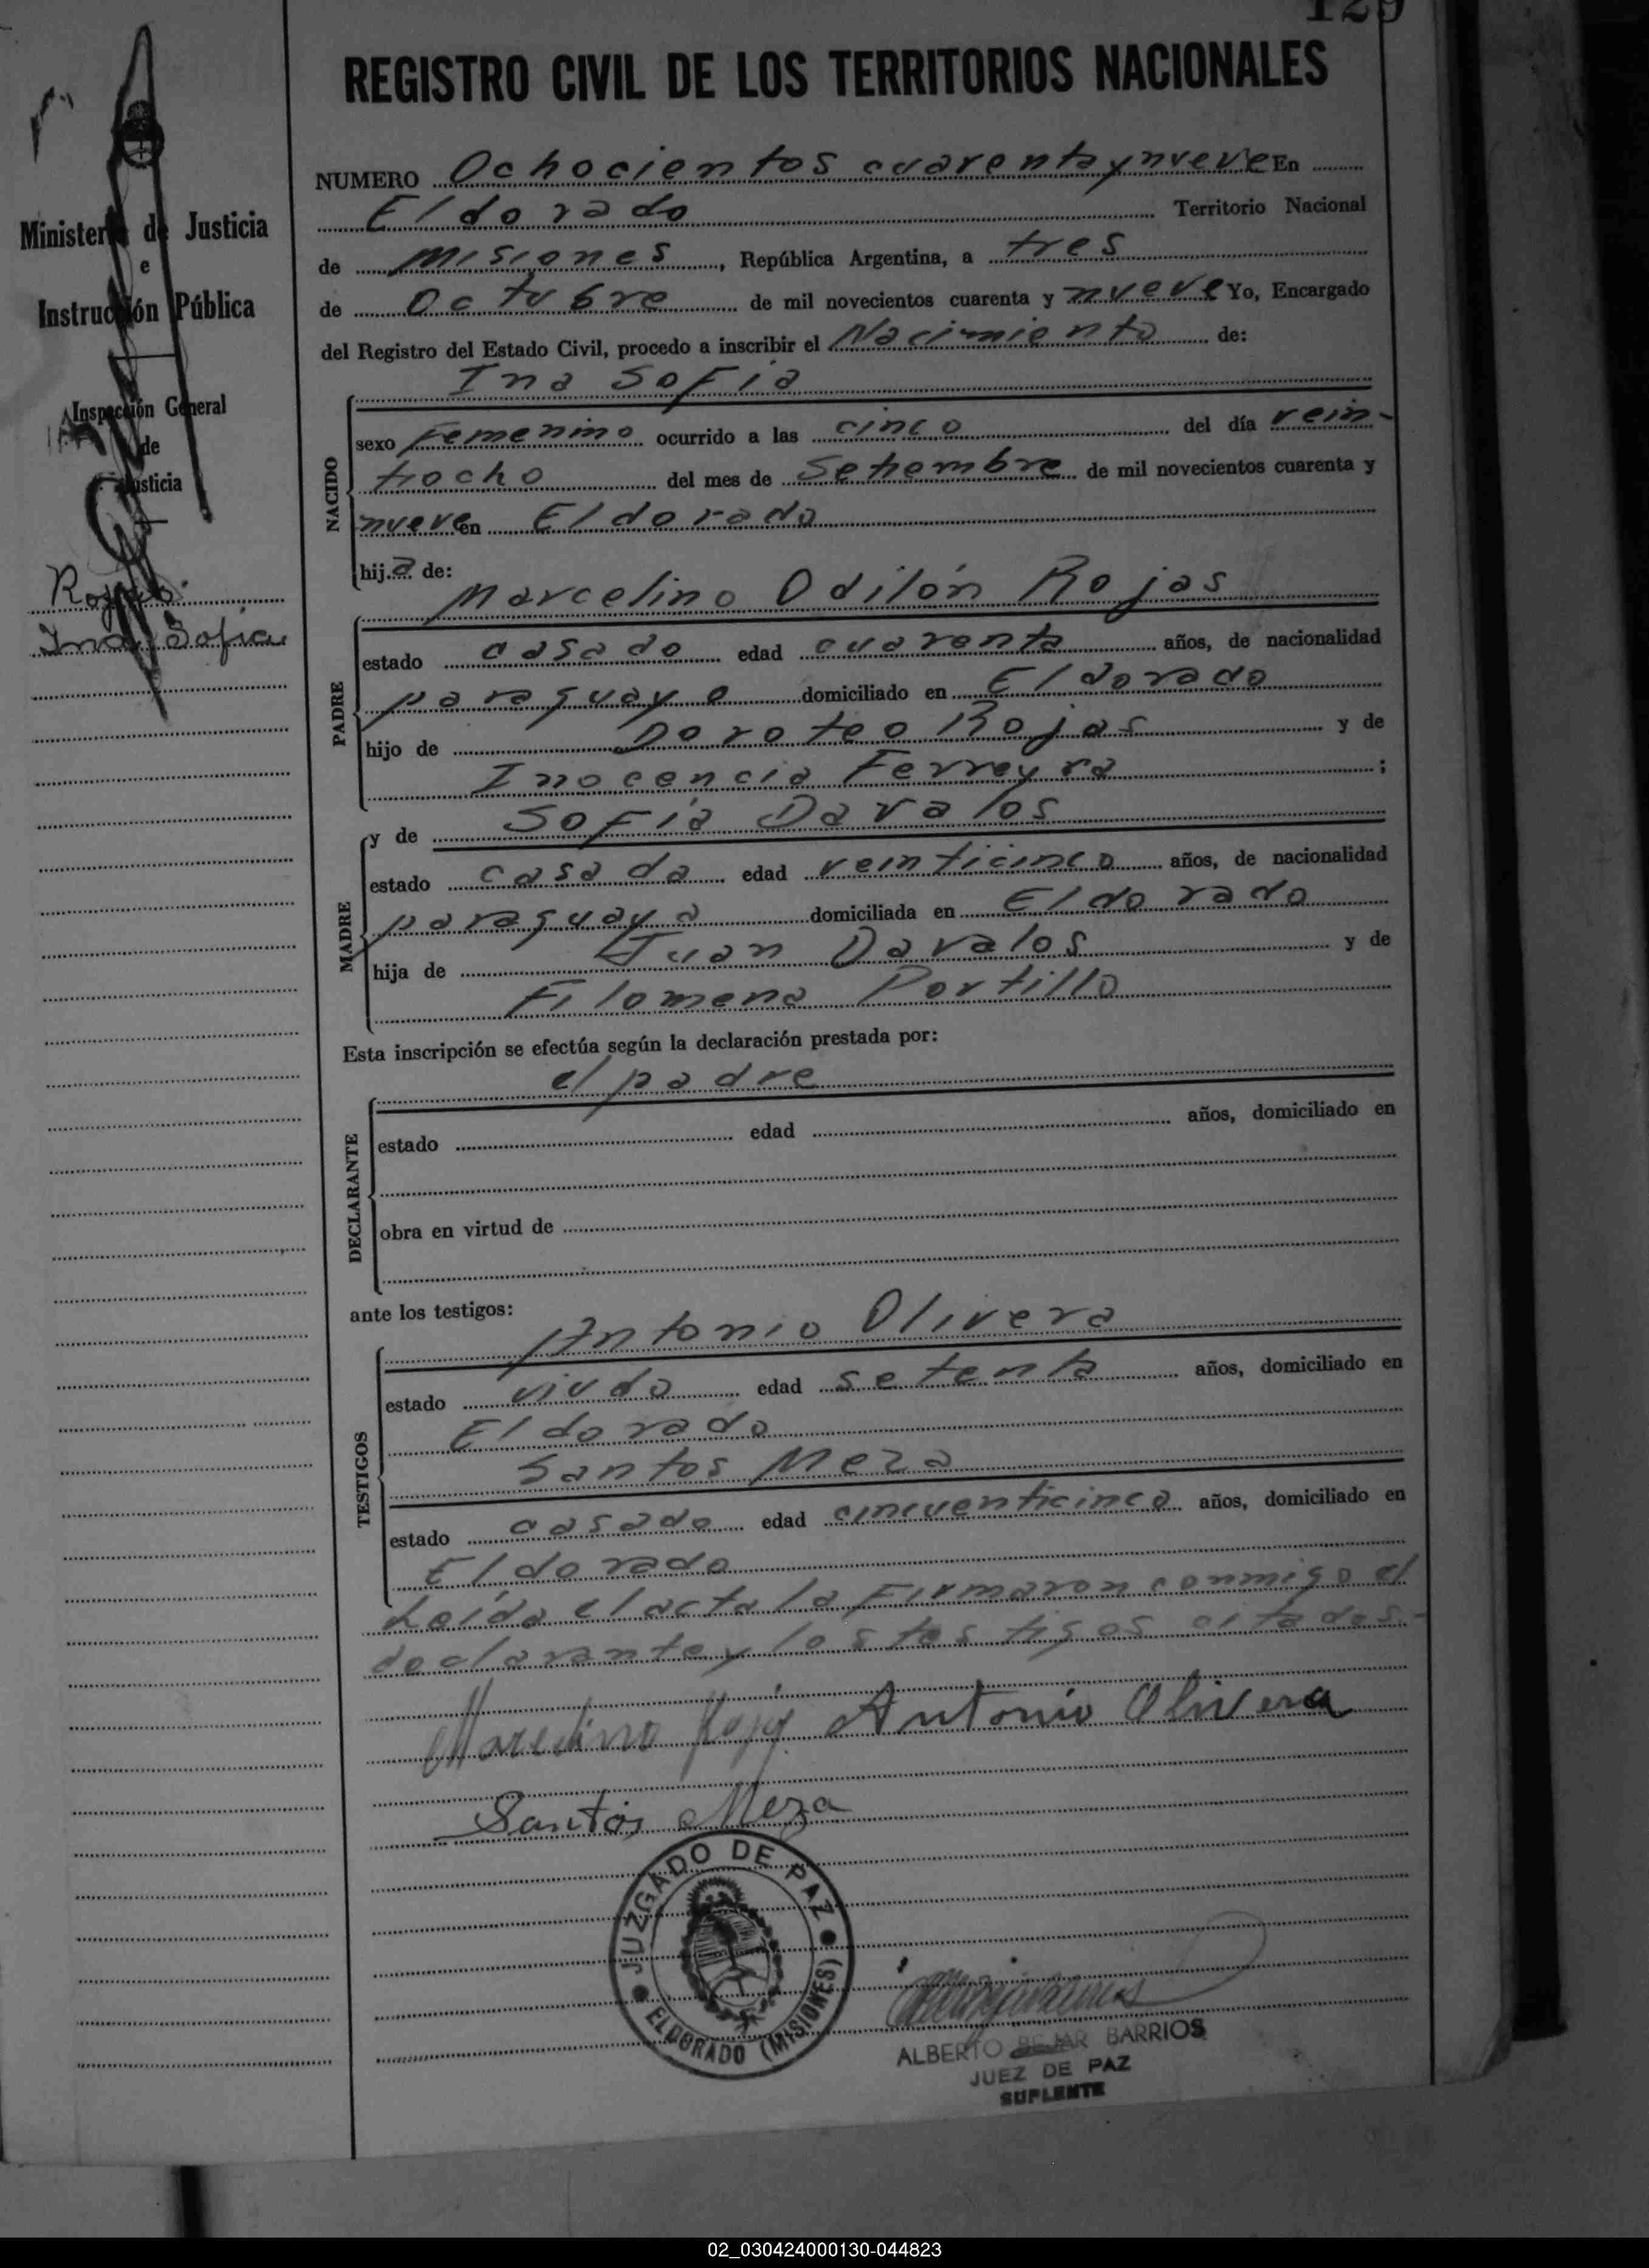 129
REGISTRO CIVIL DE LOS TERRITORIOS NACIONALES
Ministerio de Justicia
e
Instrucción Pública
Inspección General
de
Justicia
Rojas
Ina Sofia
NUMERO Ochocientos cuarenta y nueve En
Eldorado Territorio Nacional
de Misiones, República Argentina, a tres
de Octubre de mil novecientos cuarenta y nueve Yo, Encargado
del Registro del Estado Civil, procedo a inscribir el Nacimiento de:
Ina Sofia
NACIDO
sexo Femenino ocurrido a las cinco del día vein-
tiocho del mes de Setiembre de mil novecientos cuarenta y
nueve en Eldorado
hija de:
Marcelino Odilón Rojas
PADRE
estado casado edad cuarenta años, de nacionalidad
paraguayo domiciliado en Eldorado
hijo de Doroteo Rojas y de
Inocencia Ferreyra ;
MADRE
y de Sofía Davalos
estado casada edad veinticinco años, de nacionalidad
paraguaya domiciliada en Eldorado
hija de Juan Davalos y de
Filomena Portillo
Esta inscripción se efectúa según la declaración prestada por:
el padre
DECLARANTE
estado edad años, domiciliado en
obra en virtud de
ante los testigos:
Antonio Olivera
TESTIGOS
estado viudo edad setenta años, domiciliado en
Eldorado
Santos Meza
estado casado edad cincuenticinco años, domiciliado en
Eldorado
Leída el acta la Firmaron conmigo el
declarante y los testigos citados.-
Marcelino Rojas Antonio Olivera
Santos Meza
JUZGADO DE PAZ
ELDORADO (MISIONES)
ALBERTO BEJAR BARRIOS
JUEZ DE PAZ
SUPLENTE
02_030424000130-044823